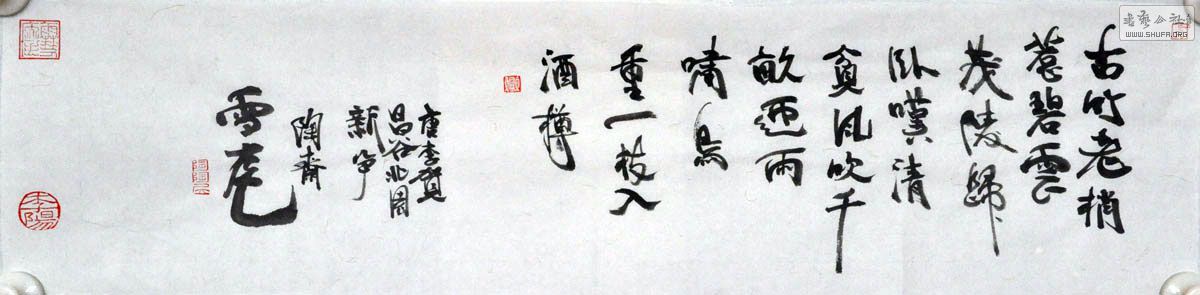 古竹老梢
惹碧雲
茂陵歸
卧嘆清
貧風吹千
畝迎雨
嘯鳥
重一枝入
酒樽
唐李賀
昌谷北園
新笋
陶齋
雪
書藝公社
WWW.SHUFA.ORG